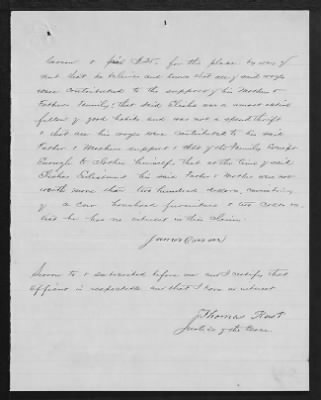 1
& paid him for the place by way of
that he believes and knows that all of said wages
were contributed to the support of his Mother &
Fathers family; that said Elisha was a most noted
fellow of good habits and was not a spendthrift
& that all his wages were contributed to his said
Father & Mothers support & all of the family except
Enough to Clothe himself, that at the time of said
Elishas Enlistment his said Father & Mother was not
worth more than two hundred dollars, consisting
of a cow household furniture & two colts
that he has no interest in this Claim.
James
Sworn to & subscribed before me and I certify that
affiant is respectable and that I have no interest
Thomas
Justice of the Peace